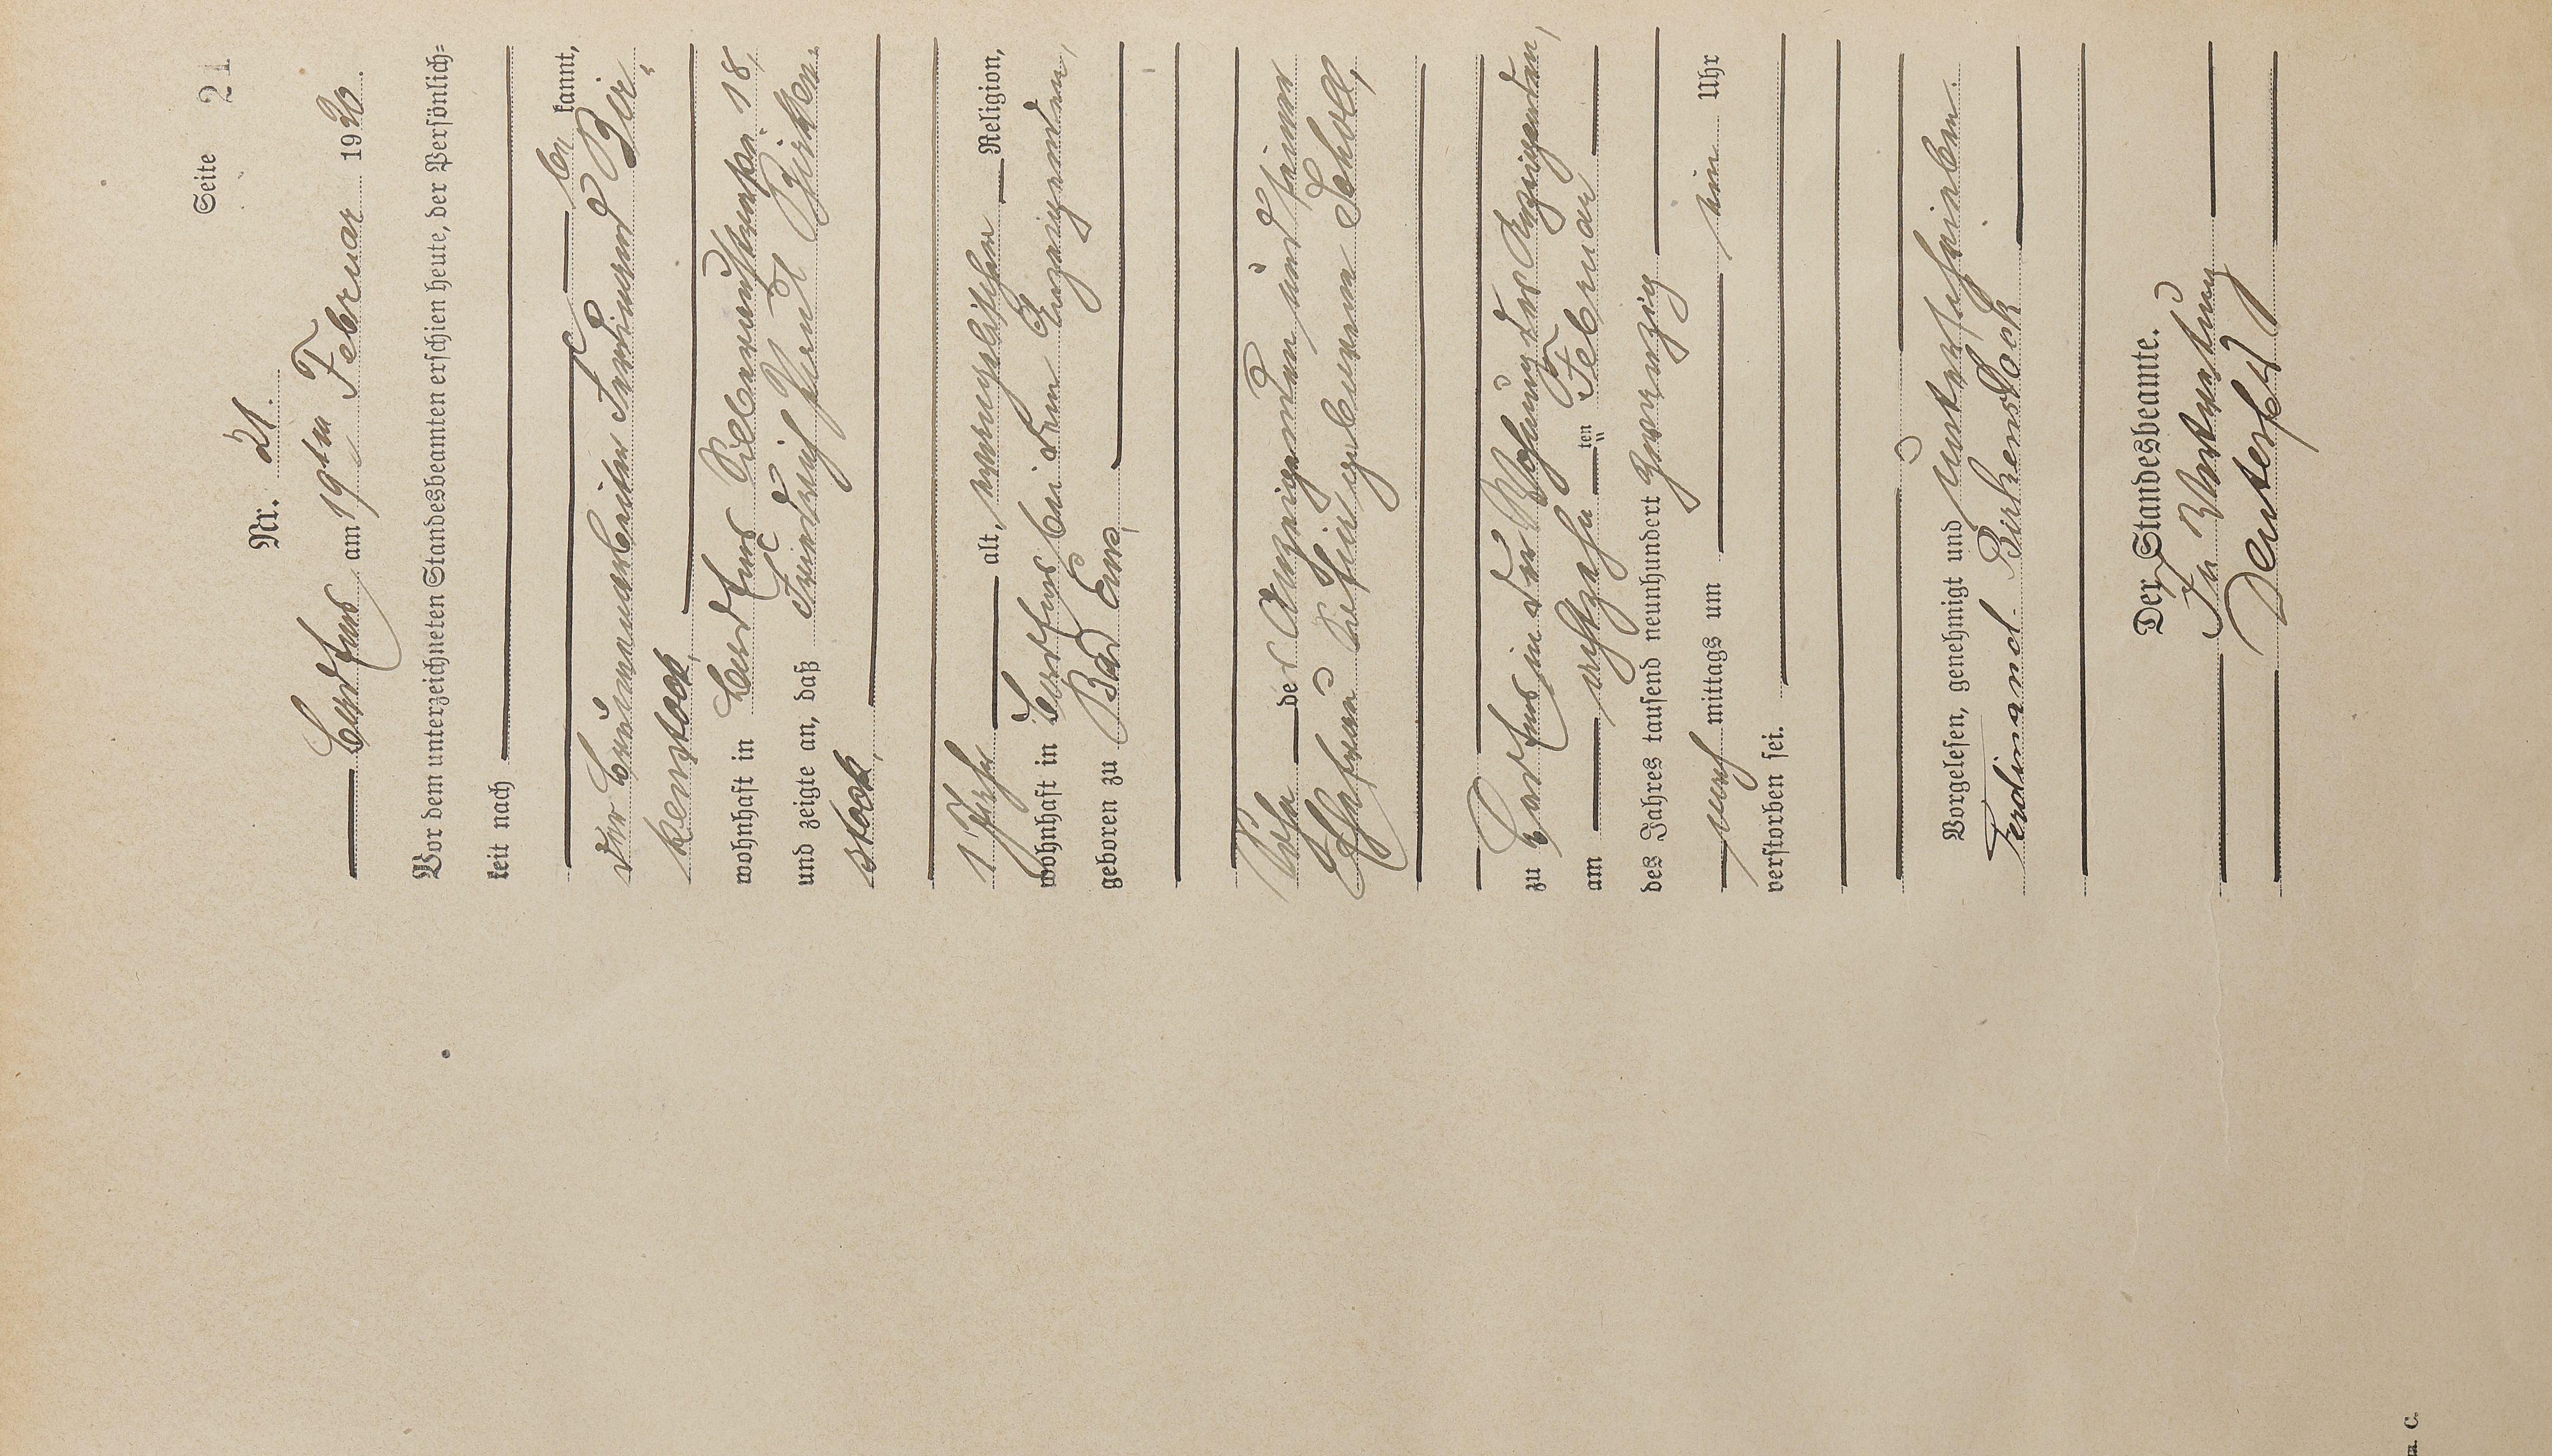 Seite 21
Nr. 21.
Bad Ems am 19ten Februar 1920.
Vor dem unterzeichneten Standesbeamten erschien heute, der Persönlich-
keit nach
be kannt,
der Eisenbahnarbeiter Ferdinand Bir-
kenstock,
wohnhaft in Bad Ems Silberaustraße 18,
und zeigte an, daß Friedrich Karl Birken-
stock,
1 Jahr alt, evangelischer Religion,
wohnhaft in Bad Ems bei dem Anzeigenden,
geboren zu Bad Ems,
Sohn des Anzeigenden und seiner
Ehefrau geborenen Scholl,
zu Bad Ems in der Wohnung des Anzeigenden,
am achtzehnten Februar
des Jahres tausend neunhundert zwanzig
nach mittags um ein Uhr
verstorben sei.
Vorgelesen, genehmigt und unterschrieben.
Ferdinand Birkenstock
Der Standesbeamte.
In Vertretung
m. C.